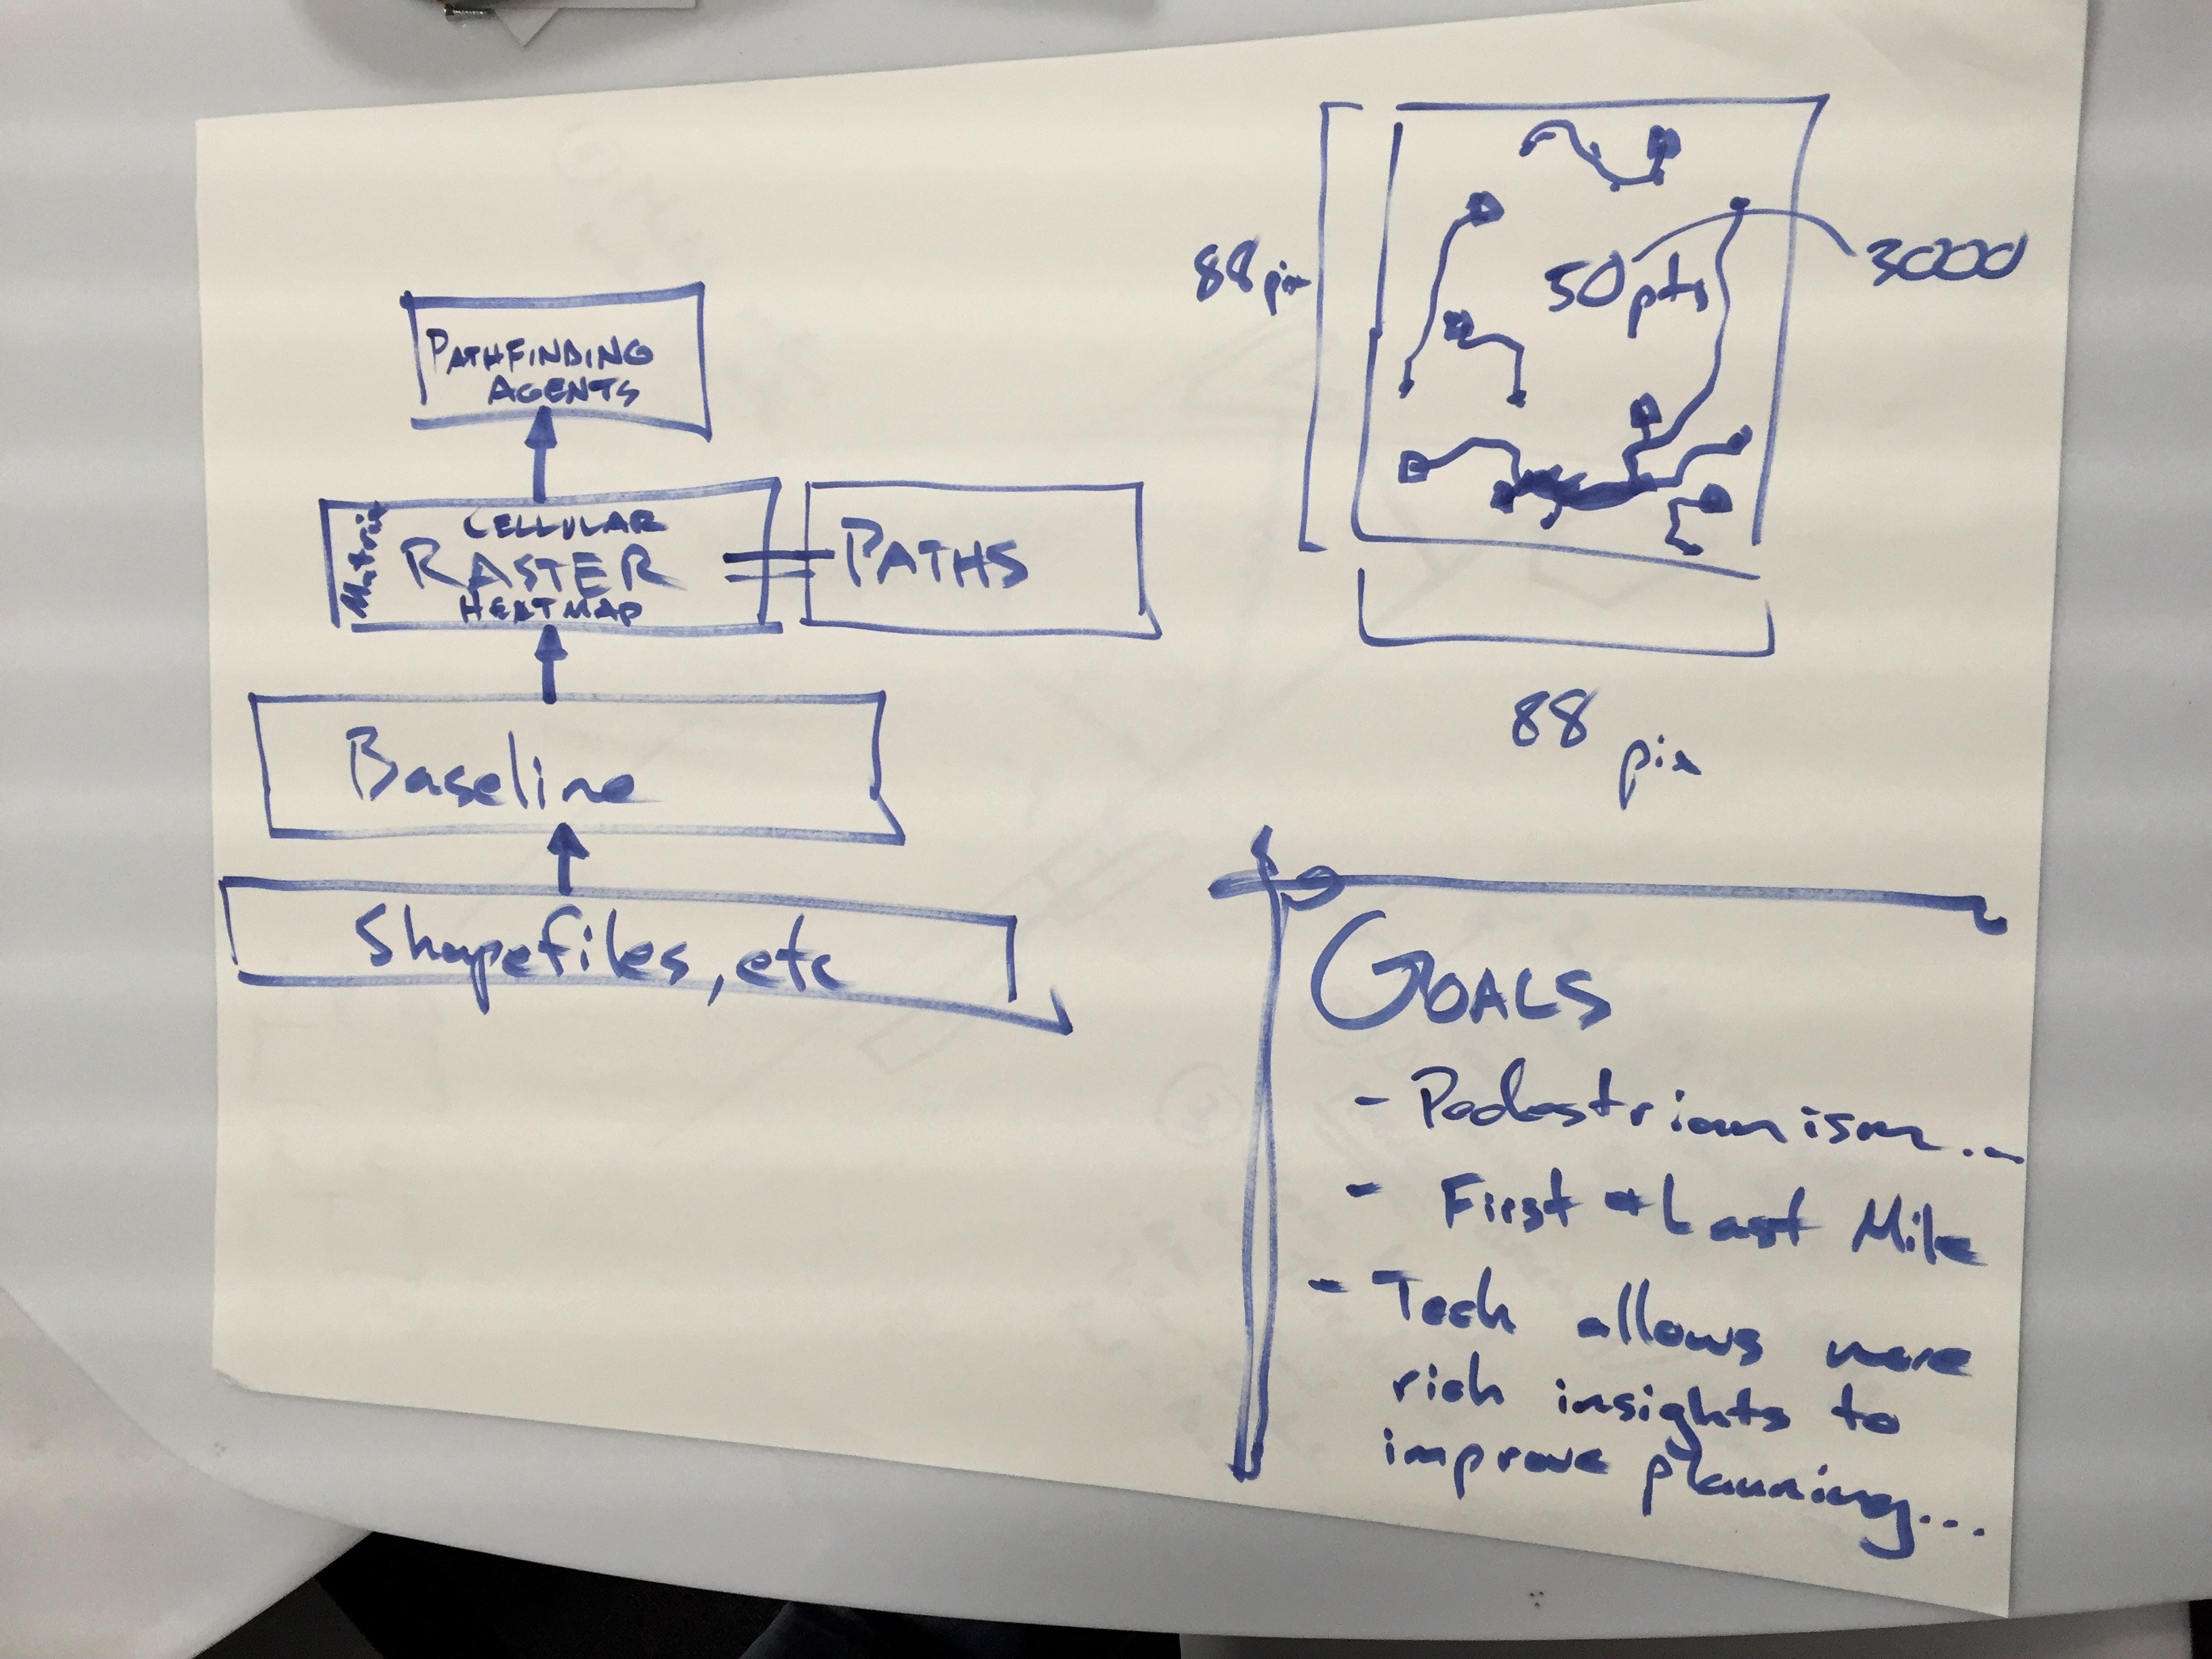 PATHFINDING
AGENTS
Matrix
CELLULAR
RASTER
HEATMAP
PATHS
Baseline
Shapefiles, etc
88 pix
50 pts
3000
88 pix
GOALS
- Pedestrianism...
- First + Last Mile
- Tech allows more
rich insights to
improve planning...